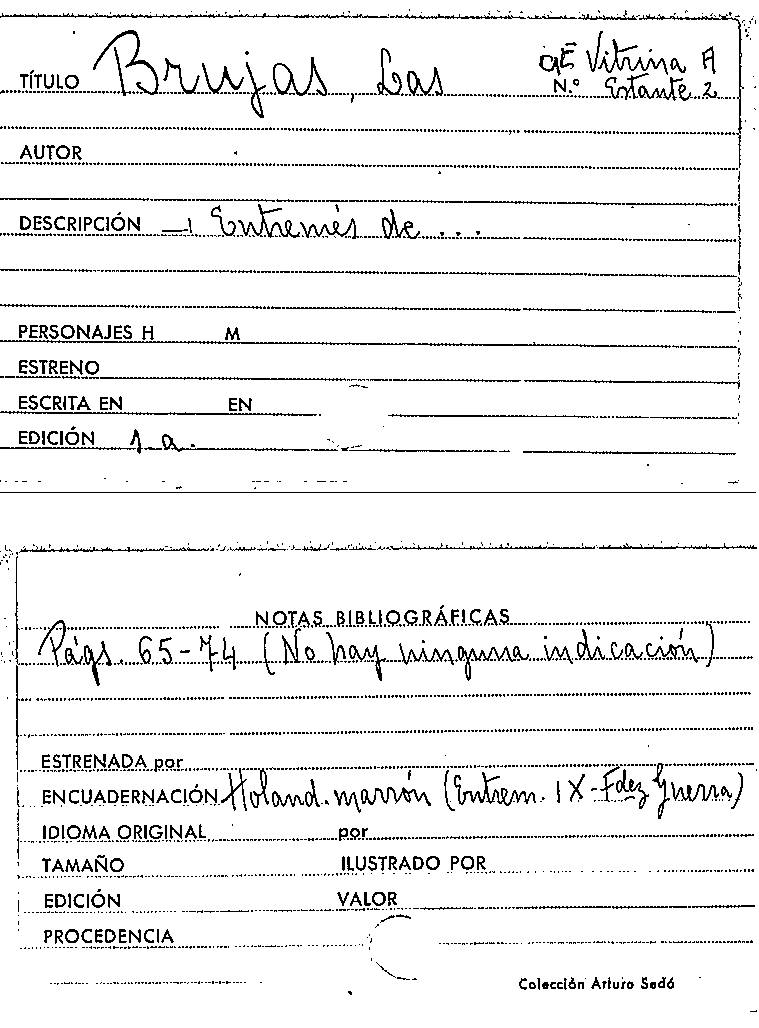 TÍTULO Brujas, Las
Vitrina A
N.º Estante 2
AUTOR
DESCRIPCIÓN — Entremés de ...
PERSONAJES H M
ESTRENO
ESCRITA EN EN
EDICIÓN s. a.
NOTAS BIBLIOGRÁFICAS
Págs. 65-74 (No hay ninguna indicación)
ESTRENADA por
ENCUADERNACIÓN Holand. marrón (Entrem. IX - Fdez Guerra)
IDIOMA ORIGINAL por
TAMAÑO ILUSTRADO POR
EDICIÓN VALOR
PROCEDENCIA
Colección Arturo Sedó